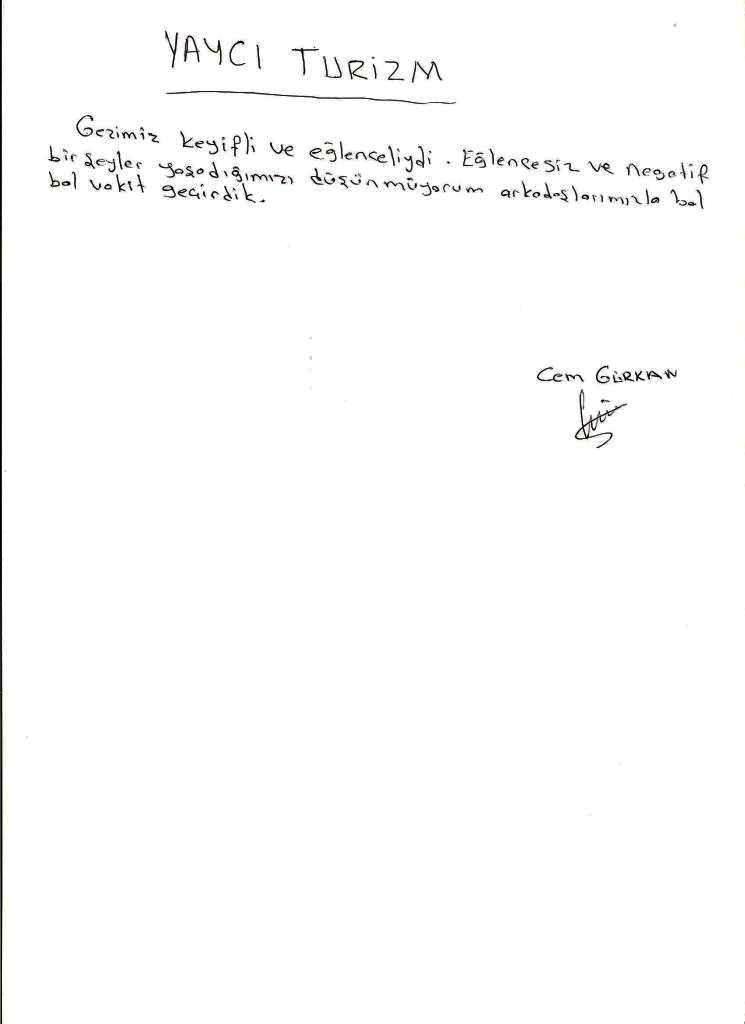 YAYCI TURİZM
Gezimiz keyifli ve eğlenceliydi. Eğlencesiz ve negatif
bir şeyler yaşadığımızı düşünmüyorum arkadaşlarımızla bol
bol vakit geçirdik.
Cem GÜRKAN